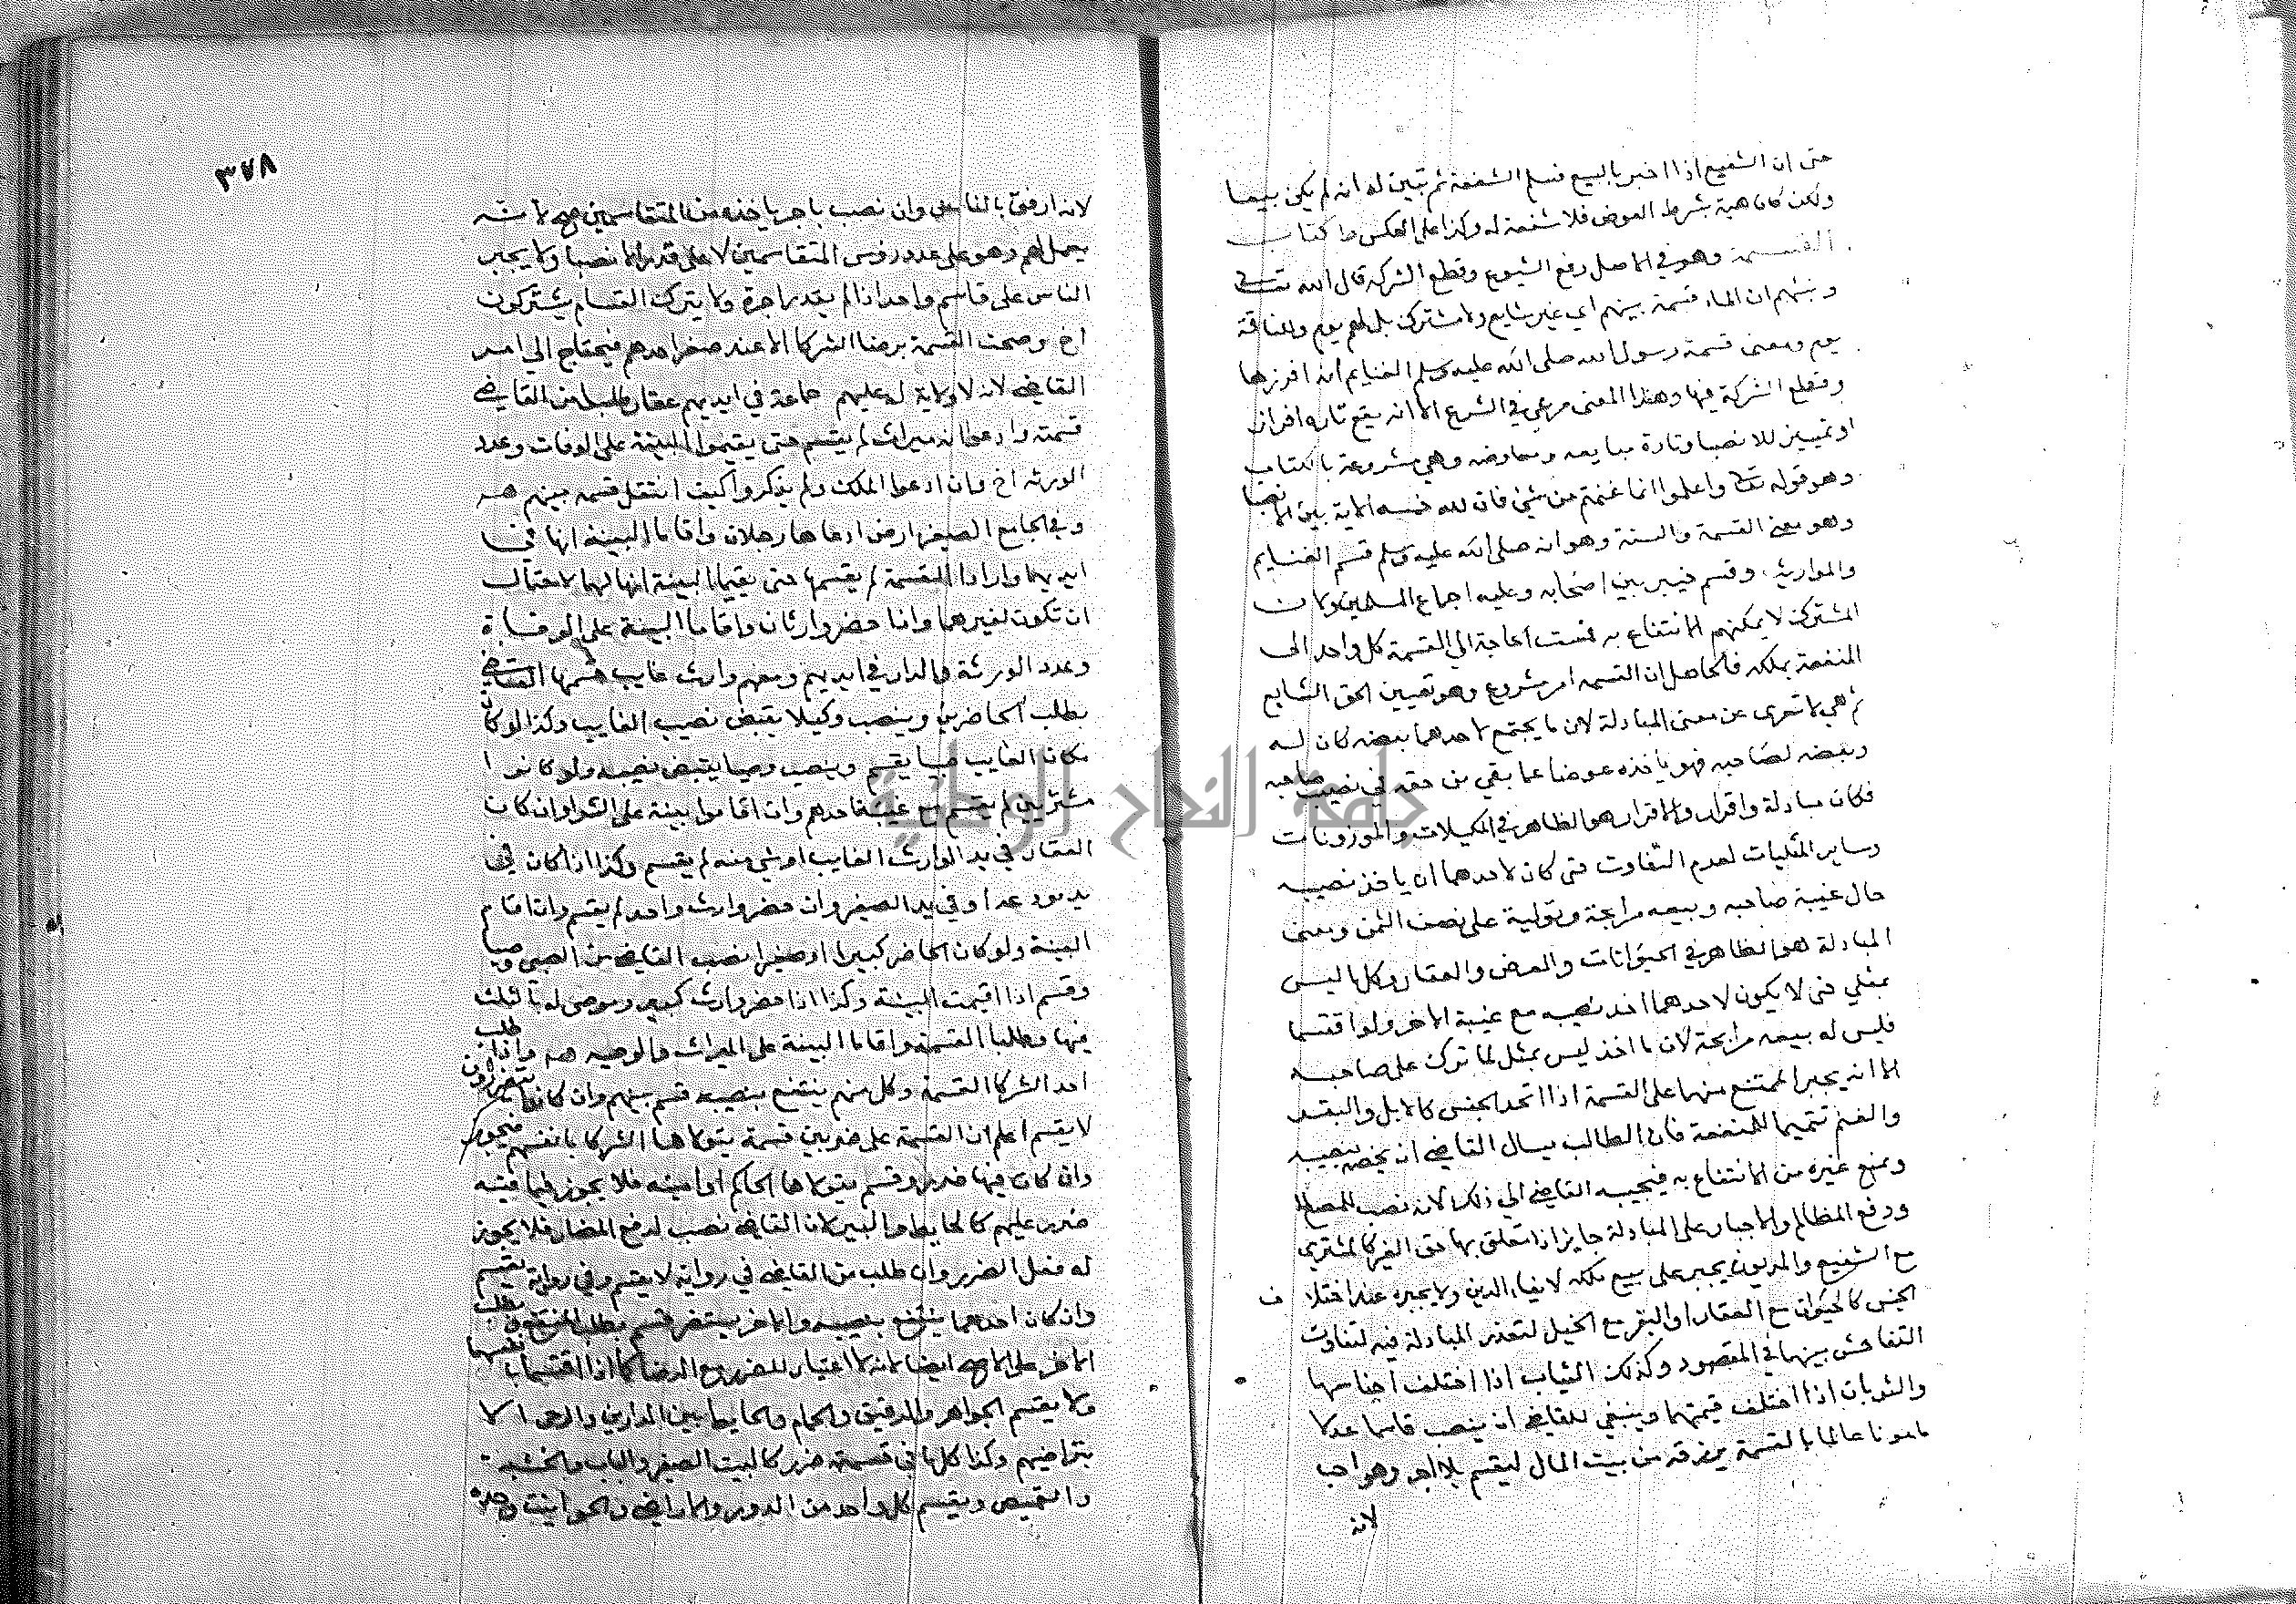 حتى ان الشفيع اذا اخبر بالبيع فسلم الشفعة ثم تبين له انه لم يكن بيعا
ولكن كان هبة بشرط العوض فلا شفعة له وكذا على العكس كتاب
القسمة وهو في الاصل رفع الشيوع وقطع الشركة قال الله تعالى
ونبئهم ان الماء قسمة بينهم اي غير شايع ولا مشترك بل لهم يوم وللناقة
يوم ومعنى قسمة رسول الله صلى الله عليه وسلم الغنايم انه افرزها
وقطع الشركة فيها وهذا المعنى مرعي في الشرع الا انه يقع تارة افراز
او تمييز للانصبا وتارة مبايعه ومعاوضه وهي مشروعة بالكتاب
وهو قوله تعالى واعلموا انما غنمتم من شيئ فان لله خمسه الاية بين الانصبا
وهو معنى القسمة والسنة وهو انه صلى الله عليه وسلم قسم الغنايم
والمواريث وقسم خيبر بين اصحابه وعليه اجماع المسلمين ولان
المشترك لا يمكنهم الانتفاع به فمست الحاجة الى القسمة كل واحد الى
المنفعة بملكه فالحاصل ان القسمه امر مشروع وهو تعيين الحق الشايع
ثم هي لا تعرى عن معنى المبادلة لان ما يجتمع لاحدهما بعضه كان له
وبعضه لصاحبه فهو ياخذه عوضا عما بقي من حقه في نصيب صاحبه
فكان مبادلة وافراز والافراز هو الظاهر في المكيلات والموزونات
وساير المثليات لعدم التفاوت حتى كان لاحدهما ان ياخذ نصيبه
حال غيبة صاحبه وبيعه مرابحة وتولية على نصف الثمن ومعنى
المبادلة هو الظاهر في الحيوانات والعرض والعقار وكل ما ليس
بمثلي حتى لا يكون لاحدهما اخذ نصيبه مع غيبة الاخر ولو اقتسما
فليس له بيعه مرابحة لان ما اخذ ليس بمثل لما ترك على صاحبه
الا انه يجبر الممتنع منهما على القسمة اذا اتحد الجنس كالابل والبقر
والغنم تتميما للمنفعة فان الطالب يسال القاضي ان يخصه بنصيبه
ويمنع غيره من الانتفاع به فيجيبه القاضي الى ذلك لانه نصب للمصالح
ودفع المظالم والاجبار على المبادلة جايز اذا تعلق بها حق الغير كالمشتري
مع الشفيع والمديون يجبر على بيع ملكه لايفاء الدين ولا يجبره عند اختلاف
الجنس كالحيوان مع العقار او البقر مع الخيل لتعذر المبادلة فيه لتفاوت
التفاحش بينهما في المقصود وكذلك الثياب اذا اختلف اجناسها
والثوبان اذا اختلف قيمتهما وينبغي للقاضي ان ينصب قاسما عدلا
مامونا عالما بالقسمة يرزقه من بيت المال ليقسم بلا اجر وهو احب
لانه
٣٧٨
لانه ارفق بالناس وان نصب باجر ياخذه من المتقاسمين صح لانه
يعمل لهم وهو على عدد رؤس المتقاسمين لا على قدر الانصبا ولا يجبر
الناس على قاسم واحد اذا لم يقدر اجرة ولا يترك القسام يشتركون
اخ وصحت القسمة برضا الشركا الا عند صغر احدهم فيحتاج الى امر
القاضي لانه لا ولاية له عليهم جماعة في ايديهم عقار طلبا من القاضي
قسمته وادعوا انه ميراث لم يقسم حتى يقيموا البينة على الوفات وعدد
الورثه اخ وان ادعوا الملك ولم يذكروا كيف انتقل قسمه بينهم هـ
وفي الجامع الصغير ارض ادعاها رجلان واقاما البينة انها في
ايديهما وارادا القسمة لم يقسمها حتى يقيما البينة انها لهما لاحتمال
ان تكون لغيرهما واذا حضر وارثان واقاما البينة على الوفاة
وعدد الورثة والدار في ايديهم ومعهم وارث غايب قسمها القاضي
بطلب الحاضرين وينصب وكيلا يقبض نصيب الغايب وكذا لو كان
مكان الغايب صبيا يقسم وينصب وصيا يقبض نصيبه ولو كانوا
مشتريين لم يقسم مع غيبة احدهم وان اقاموا بينة على الشرا وان كان
العقار في يد الوارث الغايب او شي منه لم يقسم وكذا اذا كان في
يد مودعه او في يد الصغير وان حضر وارث واحد لم يقسم وان اقام
البينة ولو كان الحاضر كبيرا او صغيرا نصب القاضي من الصبي وصيا
وقسم اذا اقيمت البينة وكذا اذا حضر وارث كبير وموصى له بالثلث
فيها وطلبا القسمة واقاما البينة على الميراث والوصيه هـ واذا طلب
احد الشركا القسمة وكل منهم ينتفع بنصيبه قسم بينهم وان كانوا يتضررون
لا يقسم اعلم ان القسمة على ضربين قسمة يتولاها الشركا بانفسهم فيجوز
وان كان فيها ضرر وقسم يتولاها الحاكم او امينه فلا يجوز فيما فيه
ضرر عليهم كالحايط والبير لان القاضي نصب لدفع المضار فلا يجوز
له فعل الضرر وان طلب من القاضي في رواية لا يقسم وفي رواية يقسم
وان كان احدهما ينتفع بنصيبه والاخر يستضر قسم بطلب المنتفع وبطلب
الاخر على الاصح ايضا لانه لا اعتبار للضرر مع الرضا كما اذا اقتسما بانفسهما
ولا يقسم الجواهر والرقيق والحمام والحايط بين الدارين والرحى الا
بتراضيهم وكذا كل ما في قسمته ضرر كالبيت الصغير والباب والخشبه
والقميص ويقسم كل واحد من الدور والاراضي والحوانيت وحده
جامعة النجاح الوطنية